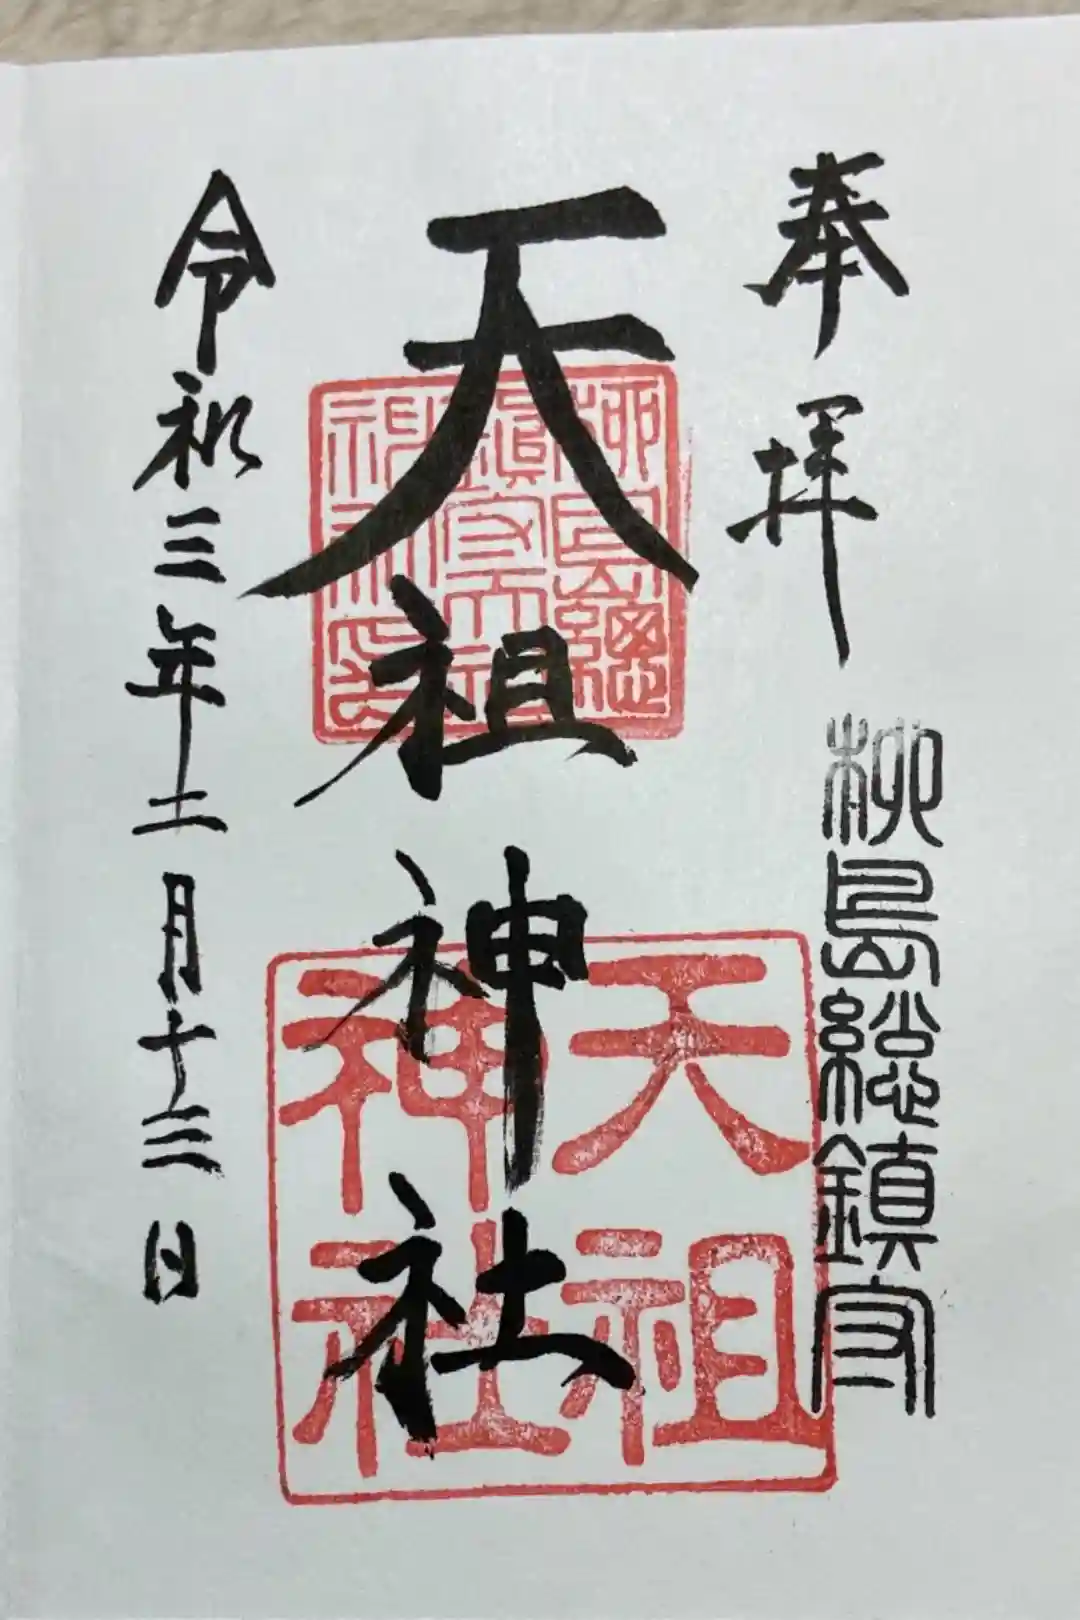 奉拝
柳島総鎮守
天祖神社
柳島總
鎮守天祖
神社印
天祖
神社
令和三年二月十三日